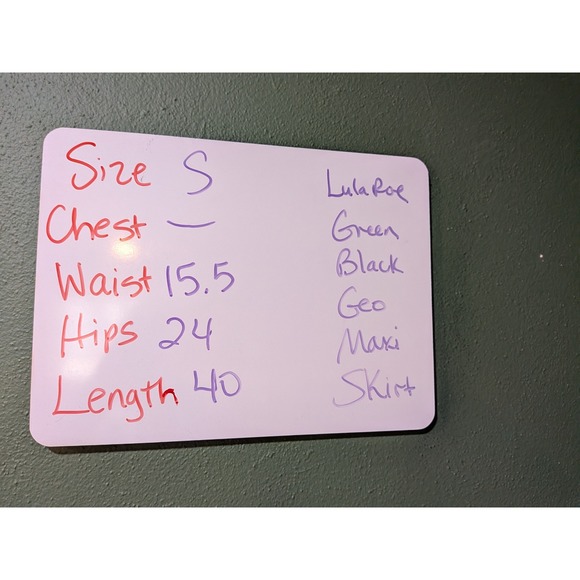 Size S
Chest —
Waist 15.5
Hips 24
Length 40
LulaRoe
Green
Black
Geo
Maxi
Skirt